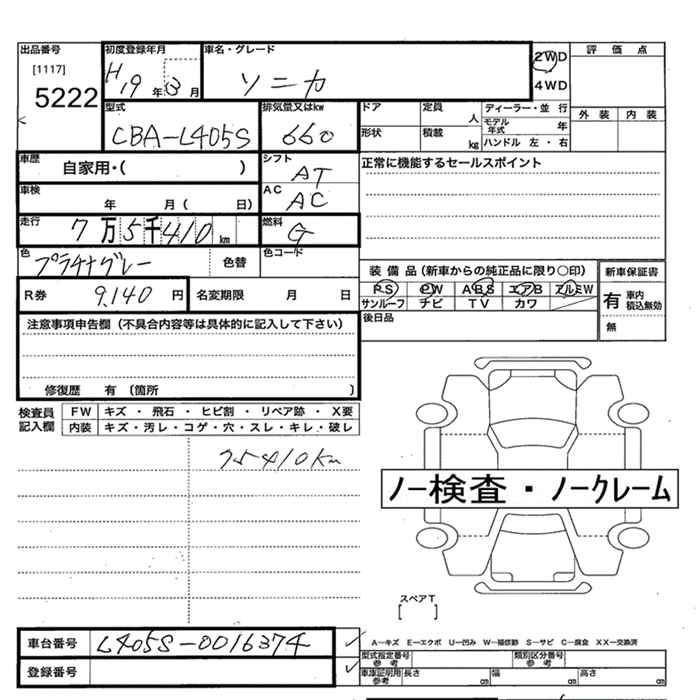 出品番号
[1117]
5222
初度登録年月
H19年3月
車名・グレード
ソニカ
2WD
4WD
評価点
外装 内装
型式
CBA-L405S
排気量又はkw
660
ドア 定員 人
形状 積載 kg
ディーラー・並行
モデル年式 年
ハンドル 左・右
車歴
自家用・( )
シフト
AT
正常に機能するセールスポイント
車検
年 月( 日)
AC
AC
走行
7万5千410km
燃料
G
色
プラチナグレー
色替
色コード
R券 9,140円
名変期限 月 日
装備品(新車からの純正品に限り○印)
PS PW ABS エアB アルミW
サンルーフ ナビ TV カワ
新車保証書
有 車内積込無効
無
後日品
注意事項申告欄(不具合内容等は具体的に記入して下さい)
修復歴 有〔箇所 〕
検査員記入欄
FW キズ・飛石・ヒビ割・リペア跡・X要
内装 キズ・汚レ・コゲ・穴・スレ・キレ・破レ
75410km
ノー検査・ノークレーム
スペアT
[ ]
車台番号 L405S-0016374
登録番号
A-キズ E-エクボ U-凹み W-補修跡 S-サビ C-腐食 XX-交換済
型式指定番号 参考
類別区分番号 参考
車庫証明用 参考 長さ cm 幅 cm 高さ cm